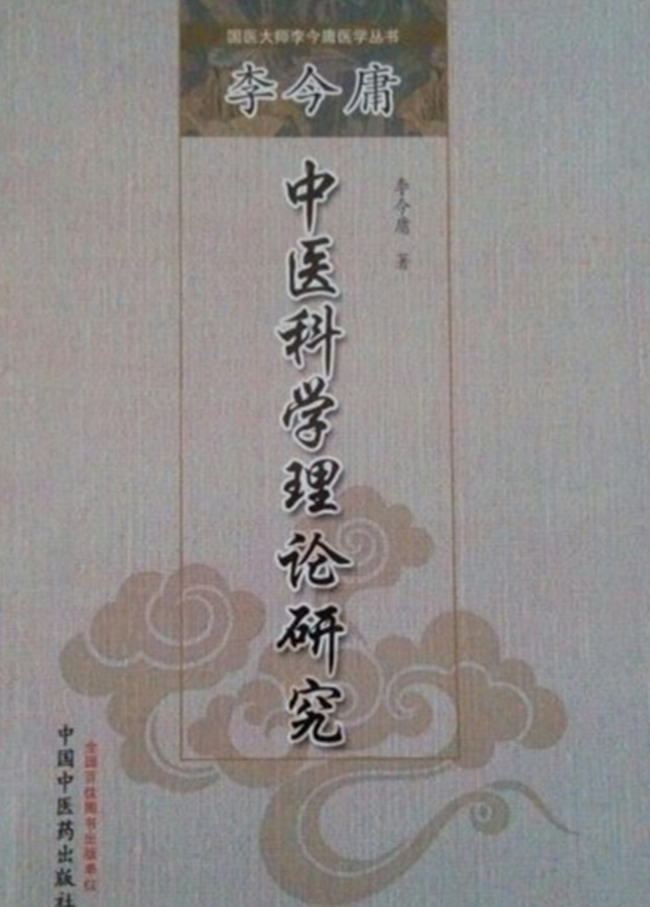 国医大师李今庸医学丛书
李今庸
中医科学理论研究
李今庸 著
中国中医药出版社
全国百佳图书出版单位